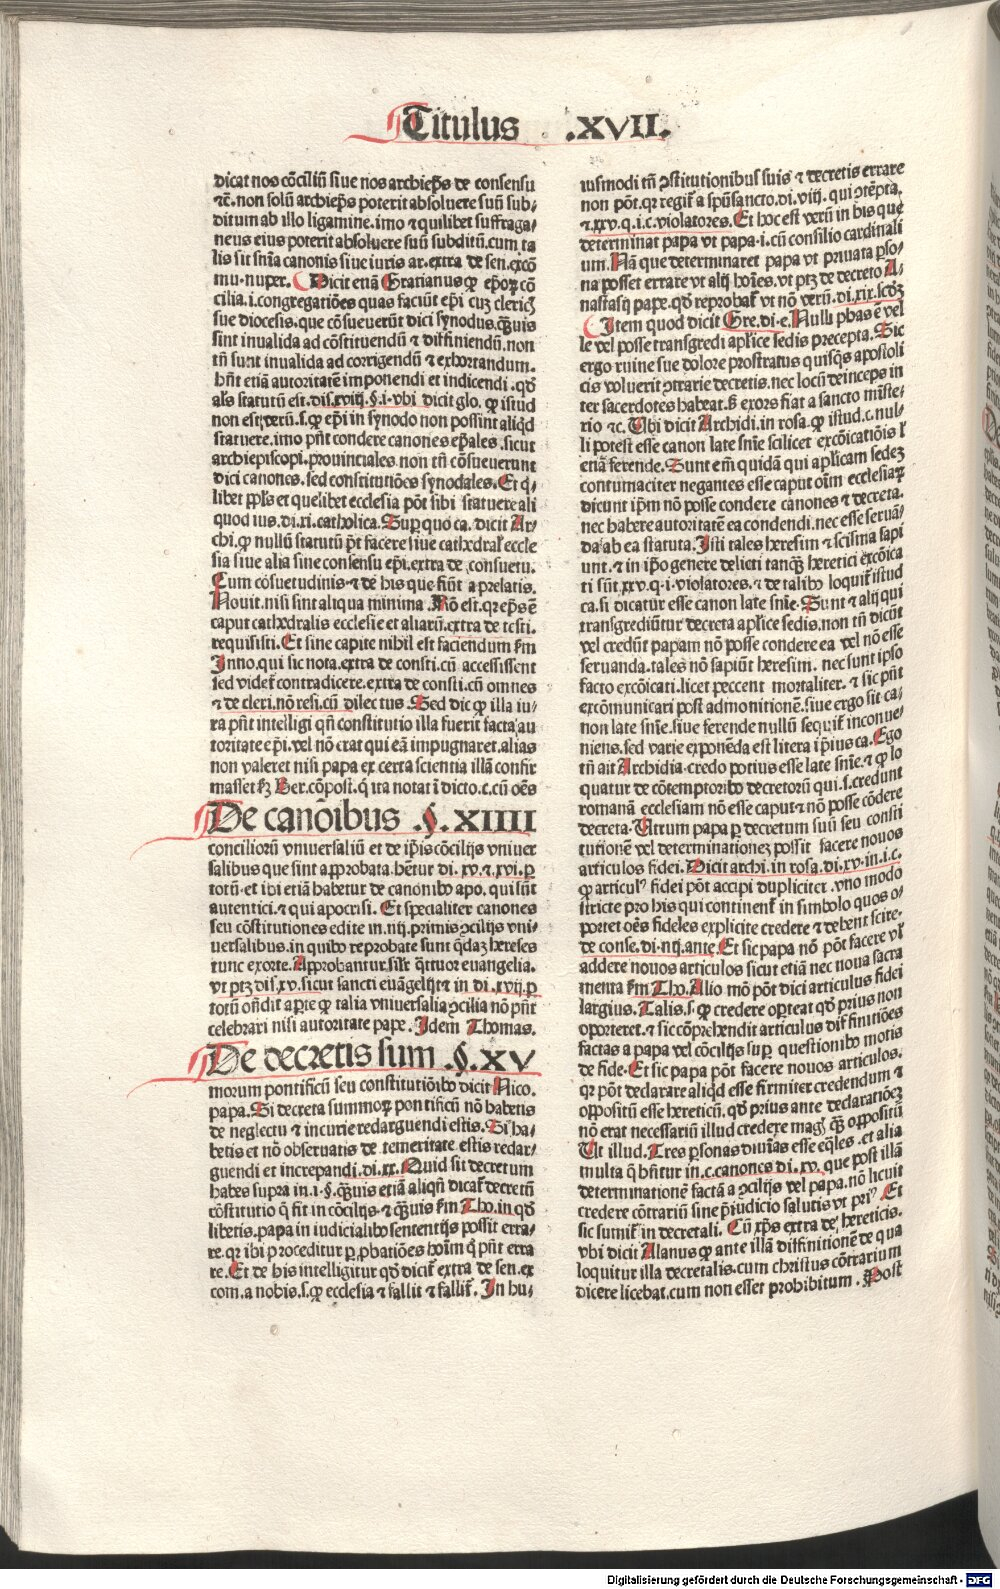 Titulus .XVII.
dicat nos cōciliū siue nos archiep̄s de consensu
⁊c̄. non solū archiep̄s poterit absoluere suū sub⸗
ditum ab illo ligamine. imo ⁊ quilibet suffraga⸗
neus eius poterit absoluere suū subditū. cum ta
lis sit snīa canonis siue iuris ar. extra de sen. excō
mu. nuper. Dicit etiā Gratianus ꝙ epōꝝ cō
cilia. i. congregatiões quas faciūt epī cuȝ clericȝ
sue diocesis. que cōsueuerūt dici synodus. ꝙ̄uis
sint invalida ad cōstituendū ⁊ diffiniendū. non
tñ sunt inualida ad corrigendū ⁊ exhortandum.
hñt etiā autoritatē imponendi et indicendi. qđ
als statutū est. dis. xviij. §. i. vbi dicit glo. ꝙ istud
non est verū. s. ꝙ epī in synodo non possint aliqđ
statuere. imo pñt condere canones ep̄ales. sicut
archiepiscopi. prouinciales non tñ cōsueuerunt
dici canones. sed constitutiões synodales. Et q̄⸗
libet ppl̄s et quelibet ecclesia pōt sibi statuere ali
quod ius. di. xi. catholica. Sup quo ca. dicit Ar⸗
chi. ꝙ nullū statutū pōt facere siue cathedral' eccle
sia siue alia sine consensu epī. extra de consuetu.
Cum cōsuetudinis. ⁊ de his que fiūt a prelatis.
Nouit. nisi sint aliqua minima. Rō est. qr ep̄s ē
caput cathedralis ecclesie et aliarū. extra de testi.
requisisti. Et sine capite nihil est faciendum fm
Inno. qui sic nota. extra de consti. cū accessissent
sed videt̄ contradicere. extra de consti. cū omnes
⁊ de cleri. nō resi. cū dilectus. Sed dic ꝙ illa iu⸗
ra pñt intelligi qñ constitutio illa fuerit facta au
toritate epī. vel nō erat qui eā impugnaret. alias
non valeret nisi papa ex certa scientia illā confir
masset fȝ Ber. cōposi. q̄ ita notat ī dicto. c. cū oēs
De canōibus .§. XIIII
conciliorū vniuersaliū et de ip̄is cōcilijs vniuer
salibus que sint approbata. hētur di. xv. ⁊. xvi. p
totū. et ibi etiā habetur de canonibꝰ apo. qui sūt
autentici. ⁊ qui apocrifi. Et specialiter canones
seu cōstitutiones edite in. iiij. primis ꝯcilijs vni⸗
uersalibus. in quibꝰ reprobate sunt q̄daȝ hereses
tunc exorte. Approbantur sil'r q̄ttuor euangelia.
vt ptȝ dis. xv. sicut sancti euāgelij. ⁊ in di. xvij. p
totū oñdit aperte ꝙ talia vniuersalia ꝯcilia nō pñt
celebrari nisi autoritate pape. Idem Thomas.
De decretis sum .§. XV
morum pontificū seu constitutiōibꝰ dicit Nico.
papa. Si decreta summoꝝ pontificū nō habetis
de neglectu ⁊ incurie redarguendi estis. Si ha⸗
betis et nō obseruatis de temeritate estis redar⸗
guendi et increpandi. di. xx. Quid sit decretum
habes supra in. i. §. ꝙ̄uis etiā aliqñ dicat̄ decretū
cōstitutio q̄ fit in cōcilijs. ⁊ ꝙ̄uis fm Tho. in qđ
libetis. papa in iudicialibꝰ sententijs possit erra⸗
re. qr ibi proceditur p pbatiōes hoīm q̄ pñt erra
re. Et de his intelligitur qđ dicit̄ extra de sen. ex
com. a nobis. s. ꝙ ecclesia ⁊ fallit ⁊ fallit̄. In hu⸗
iusmodi tñ ꝯstitutionibus suis ⁊ decretis errare
non pōt. qr regit̄ a spūsancto. di. viij. qui ꝯtēpta.
⁊. xxv. q. i. c. violatores. Et hoc est verū in his que
determinat papa vt papa. i. cū consilio cardinali
um. Nā que determinaret papa vt priuata pso⸗
na posset errare vt alij hoīes. vt ptȝ de decreto A⸗
nastasij pape. qđ reprobat̄ vt nō verū. di. xix. scđȝ
Item quod dicit Gre. di. e. Nulli phas ē vel
le vel posse transgredi aplīce sedis precepta. Sic
ergo ruine sue dolore prostratus quisq̄s apostoli
cis voluerit ꝯtrarie decretis. nec locū deinceps in
ter sacerdotes habeat. s̄ exors fiat a sancto miste⸗
rio ⁊c. Ubi dicit Archidi. in rosa. ꝙ istud. c. nul⸗
li potest esse canon late snīe scilicet excōicatiōis l'
etiā ferende. Sunt em̄ quidā qui aplīcam sedeȝ
contumaciter negantes esse caput oīm ecclesiaꝝ
dicunt ip̄m nō posse condere canones ⁊ decreta.
nec habere autoritatē ea condendi. nec esse seruā⸗
da ab ea statuta. Isti tales heresim ⁊ scisma sapi
unt. ⁊ in ip̄o genere delicti tanqȝ heretici excōica
ti sūt. xxv. q. i. violatores. ⁊ de talibꝰ loquit̄ istud
ca. si dicatur esse canon late snīe. Sunt ⁊ alij qui
transgrediūtur decreta aplīce sedis. non tñ dicūt
vel credūt papam nō posse condere ea vel nō esse
seruanda. tales nō sapiūt heresim. nec sunt ipso
facto excōicati. licet peccent mortaliter. ⁊ sic pñt
excōmunicari post admonitionē. siue ergo sit ca⸗
non late snīe. siue ferende nullū sequit̄ inconue⸗
niens. sed varie exponēda est litera ip̄ius ca. Ego
tñ ait Archidia. credo potius esse late snīe. ⁊ ꝙ lo
quatur de cōtemptoribꝰ decretorū qui. s. credunt
romanā ecclesiam nō esse caput ⁊ nō posse cōdere
decreta. Utrum papa p decretum suū seu consti
tutionē vel determinationeȝ possit facere nouos
articulos fidei. Dicit archi. in rosa. di. xv. in. i. c.
ꝙ articul' fidei pōt accipi dupliciter. vno modo
stricte pro his qui continent̄ in simbolo quos o⸗
portet oēs fideles explicite credere ⁊ debent scire.
de conse. di. iiij. ante. Et sic papa nō pōt facere vl'
addere nouos articulos sicut etiā nec noua sacra
menta fm Tho. Alio mō pōt dici articulus fidei
largius. Talis. s. ꝙ credere oporteat qđ prius non
oporteret. ⁊ sic cōprehendit articulus diffinitiões
factas a papa vel cōcilijs sup questionibꝰ motis
de fide. Et sic papa pōt facere nouos articulos.
qr pōt declarare aliqđ esse firmiter credendum ⁊
oppositū esse hereticū. qđ prius ante declaratiōeȝ
nō erat necessariū illud credere magȝ qȝ oppositū
Ut illud. Tres psonas diuinas esse eq̄les. et alia
multa q̄ hñtur in. c. canones di. xv. que post illā
determinationē factā a ꝯcilijs vel papa. nō licuit
credere cōtrariū sine p̄iudicio salutis vt pri'. Et
sic sumit̄ in decretali. Cū xp̄s extra de hereticis.
vbi dicit Alanus ꝙ ante illā diffinitionē de qua
loquitur illa decretalis. cum christus cōtrarium
dicere licebat. cum non esset prohibitum. Post
Digitalisierung gefördert durch die Deutsche Forschungsgemeinschaft - DFG